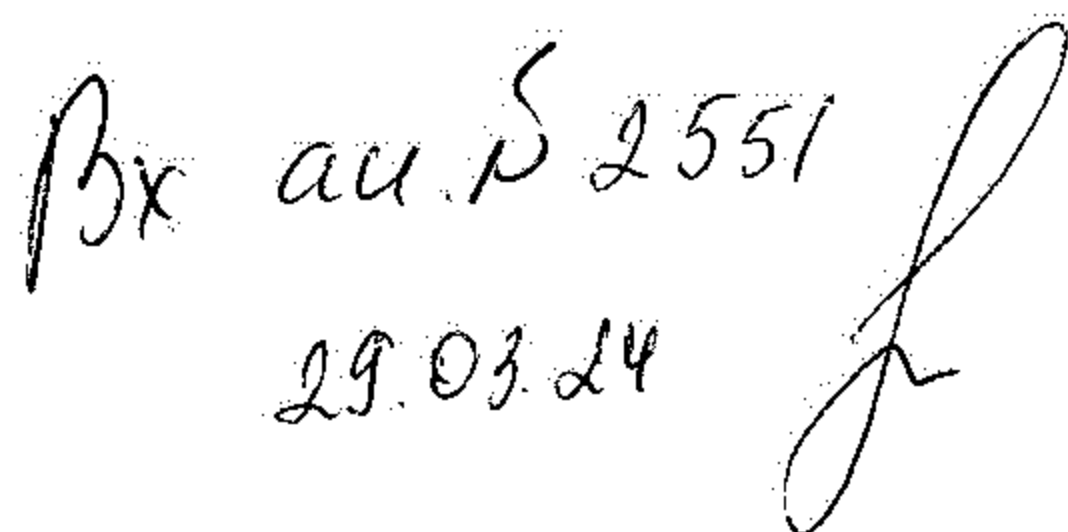 Вх ан. № 2551
29.03.24